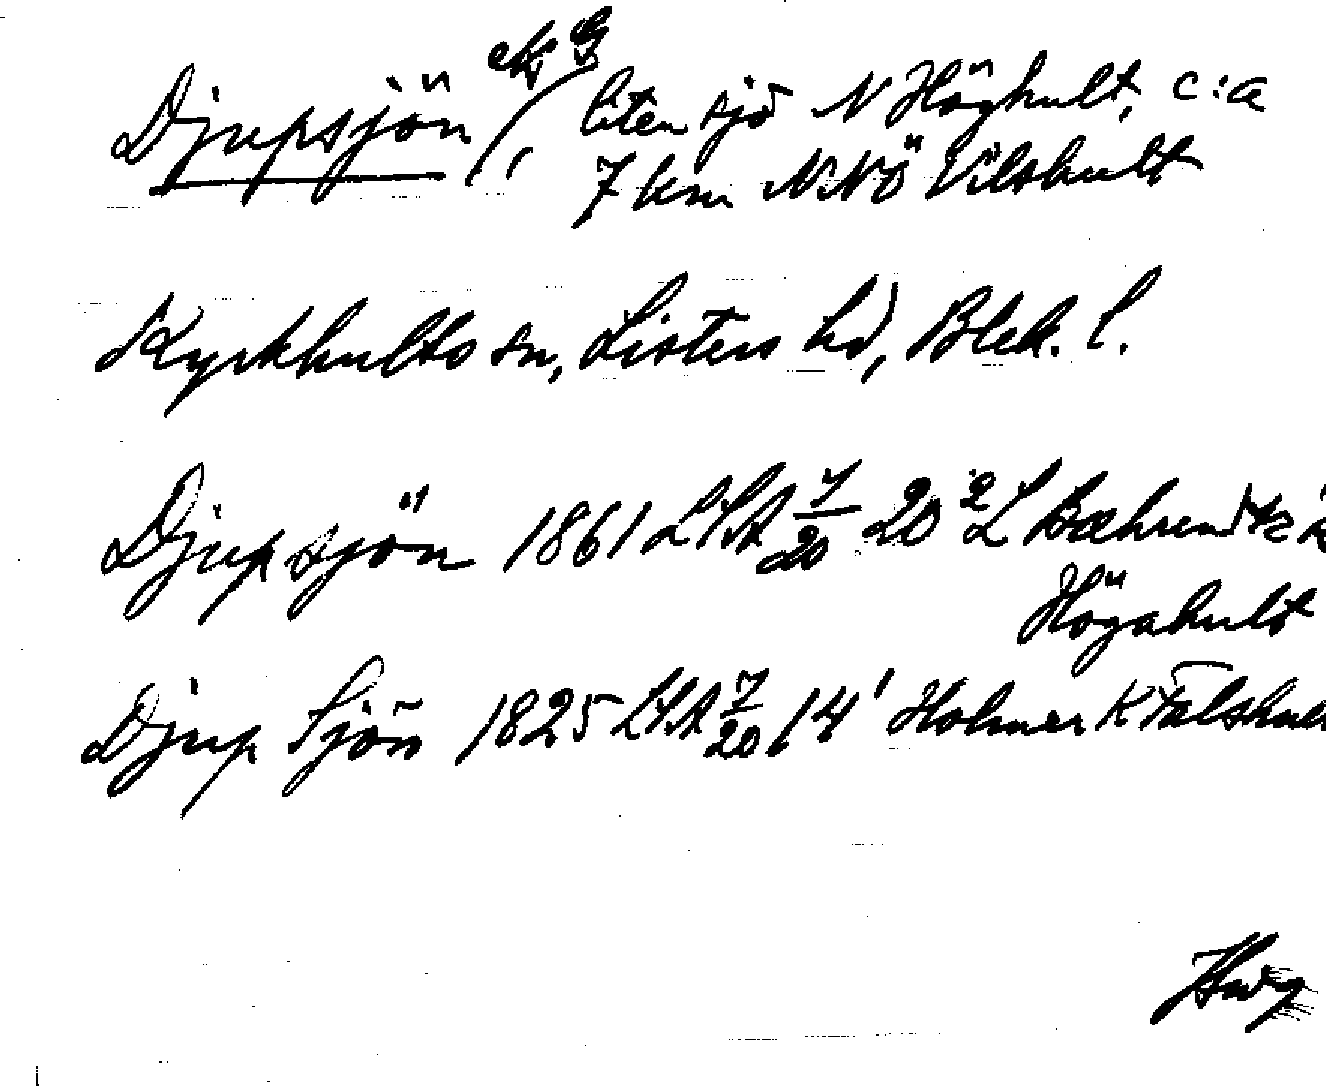 Djupsjön, liten sjö N Höghult, c:a
7 km NNÖ Vilshult
Kyrkhults sn, Listers hd, Blek. l.
Djupsjön 1861 LSA 7/20 20 2 L Bæhrendtz
Högahult
Djup Sjön 1825 LSA 7/20 14' Holmer K